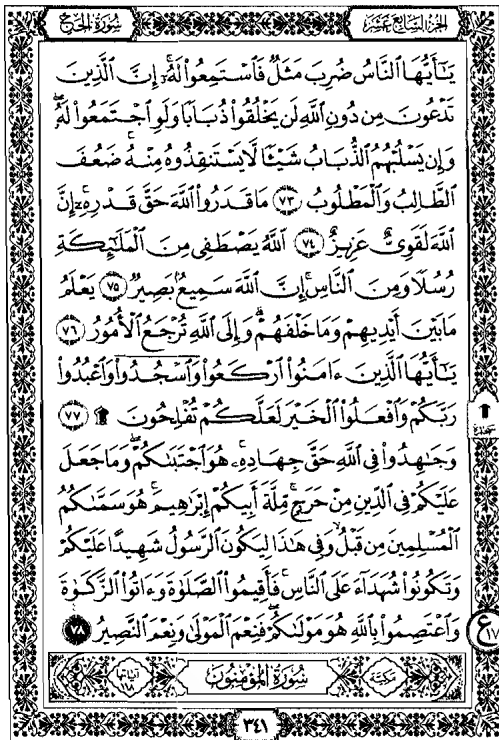 سُورَةُ الحَجّ
الجُزءُ السَّابِعَ عَشَرَ
يَٰٓأَيُّهَا ٱلنَّاسُ ضُرِبَ مَثَلٞ فَٱسۡتَمِعُواْ لَهُۥٓۚ إِنَّ ٱلَّذِينَ
تَدۡعُونَ مِن دُونِ ٱللَّهِ لَن يَخۡلُقُواْ ذُبَابٗا وَلَوِ ٱجۡتَمَعُواْ لَهُۥۖ
وَإِن يَسۡلُبۡهُمُ ٱلذُّبَابُ شَيۡـٔٗا لَّا يَسۡتَنقِذُوهُ مِنۡهُۚ ضَعُفَ
ٱلطَّالِبُ وَٱلۡمَطۡلُوبُ ٧٣ مَا قَدَرُواْ ٱللَّهَ حَقَّ قَدۡرِهِۦٓۚ إِنَّ
ٱللَّهَ لَقَوِيٌّ عَزِيزٌ ٧٤ ٱللَّهُ يَصۡطَفِي مِنَ ٱلۡمَلَٰٓئِكَةِ
رُسُلٗا وَمِنَ ٱلنَّاسِۚ إِنَّ ٱللَّهَ سَمِيعُۢ بَصِيرٞ ٧٥ يَعۡلَمُ
مَا بَيۡنَ أَيۡدِيهِمۡ وَمَا خَلۡفَهُمۡۚ وَإِلَى ٱللَّهِ تُرۡجَعُ ٱلۡأُمُورُ ٧٦
يَٰٓأَيُّهَا ٱلَّذِينَ ءَامَنُواْ ٱرۡكَعُواْ وَٱسۡجُدُواْ وَٱعۡبُدُواْ
رَبَّكُمۡ وَٱفۡعَلُواْ ٱلۡخَيۡرَ لَعَلَّكُمۡ تُفۡلِحُونَ ۩ ٧٧
سجدة
وَجَٰهِدُواْ فِي ٱللَّهِ حَقَّ جِهَادِهِۦۚ هُوَ ٱجۡتَبَىٰكُمۡ وَمَا جَعَلَ
عَلَيۡكُمۡ فِي ٱلدِّينِ مِنۡ حَرَجٖۚ مِّلَّةَ أَبِيكُمۡ إِبۡرَٰهِيمَۚ هُوَ سَمَّىٰكُمُ
ٱلۡمُسۡلِمِينَ مِن قَبۡلُ وَفِي هَٰذَا لِيَكُونَ ٱلرَّسُولُ شَهِيدًا عَلَيۡكُمۡ
وَتَكُونُواْ شُهَدَآءَ عَلَى ٱلنَّاسِۚ فَأَقِيمُواْ ٱلصَّلَوٰةَ وَءَاتُواْ ٱلزَّكَوٰةَ
وَٱعۡتَصِمُواْ بِٱللَّهِ هُوَ مَوۡلَىٰكُمۡۖ فَنِعۡمَ ٱلۡمَوۡلَىٰ وَنِعۡمَ ٱلنَّصِيرُ ٧٨
ع ١٧
مكيّة
سُورَةُ المُؤمِنُون
آياتها ١١٨
٣٤١